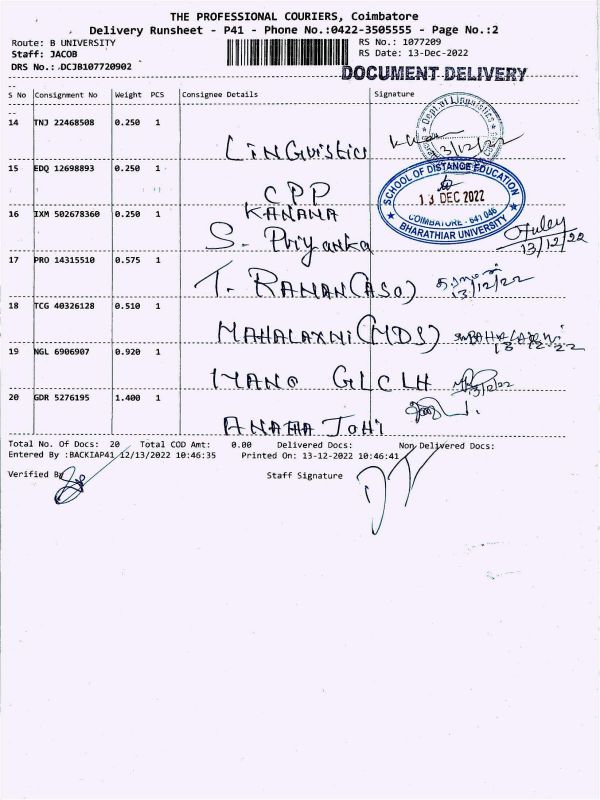 THE PROFESSIONAL COURIERS, Coimbatore
Delivery Runsheet - P41 - Phone No.:0422-3505555 - Page No.:2
Route: B UNIVERSITY
RS No.: 1077209
Staff: JACOB
RS Date: 13-Dec-2022
DRS No.: DCJB107720902
DOCUMENT DELIVERY
S No Consignment No Weight PCS Consignee Details Signature
14 TNJ 22468508 0.250 1
Linguistics
Dept. of Linguistics
13/12/22
15 EDQ 12698893 0.250 1
CPP
SCHOOL OF DISTANCE EDUCATION
13 DEC 2022
COIMBATORE - 641 046
BHARATHIAR UNIVERSITY
16 IXM 502678360 0.250 1
KANANA
S. Priyanka
13/12/22
17 PRO 14315510 0.575 1
T. RAMAN (ASO)
13/12/22
18 TCG 40326128 0.510 1
MAHALAXMI (MDS)
13 12 22
19 NGL 6906907 0.920 1
20 GDR 5276195 1.400 1
Total No. Of Docs: 20 Total COD Amt: 0.00 Delivered Docs: Non Delivered Docs:
Entered By :BACKIAP41 12/13/2022 10:46:35 Printed On: 13-12-2022 10:46:41
Verified By
Staff Signature